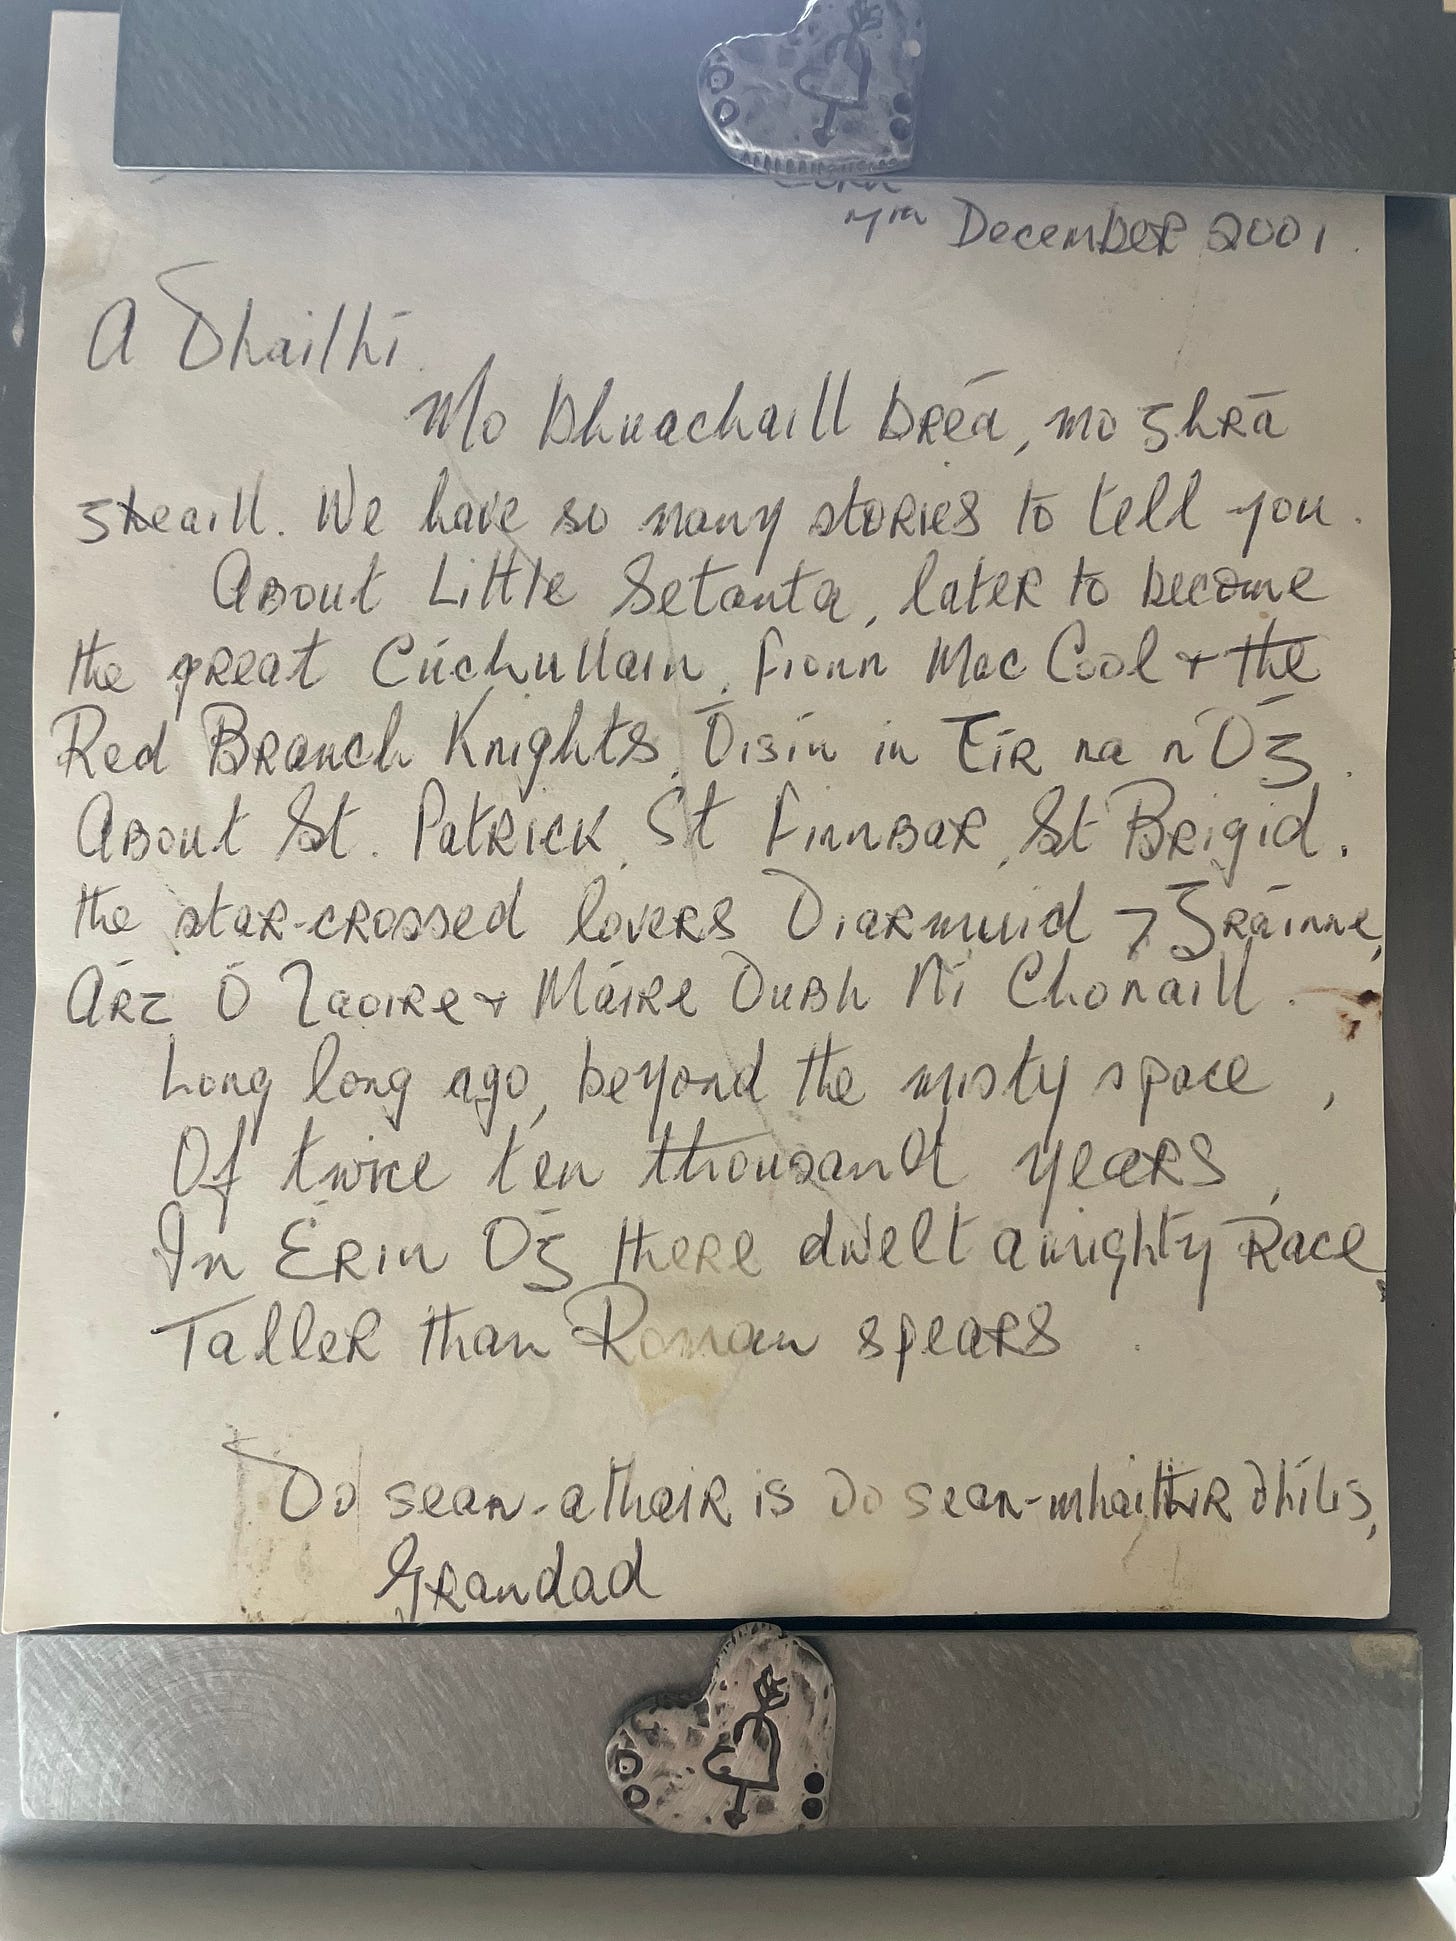 December 2001.
A Dhailhi.
Mo bhuachaill breá, mo ghrá
gheaill. We have so many stories to tell you.
About Little Setanta, later to become
the great Cúchullain, Fionn Mac Cool + the
Red Branch Knights, Oisín in Tír na nÓg.
About St. Patrick, St Finnbar, St Brigid.
the star-crossed lovers Diarmuid ⁊ Gráinne,
Árt Ó Laoire + Máire Dubh Ní Chonaill.
Long long ago, beyond the misty space,
Of twice ten thousand years,
In Erin Óg there dwelt a mighty Race,
Taller than Roman spears.
Do sean-athair is do sean-mhaithir dhílis,
Grandad